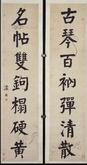 古琴百衲彈清散
名帖雙鉤榻硬黃